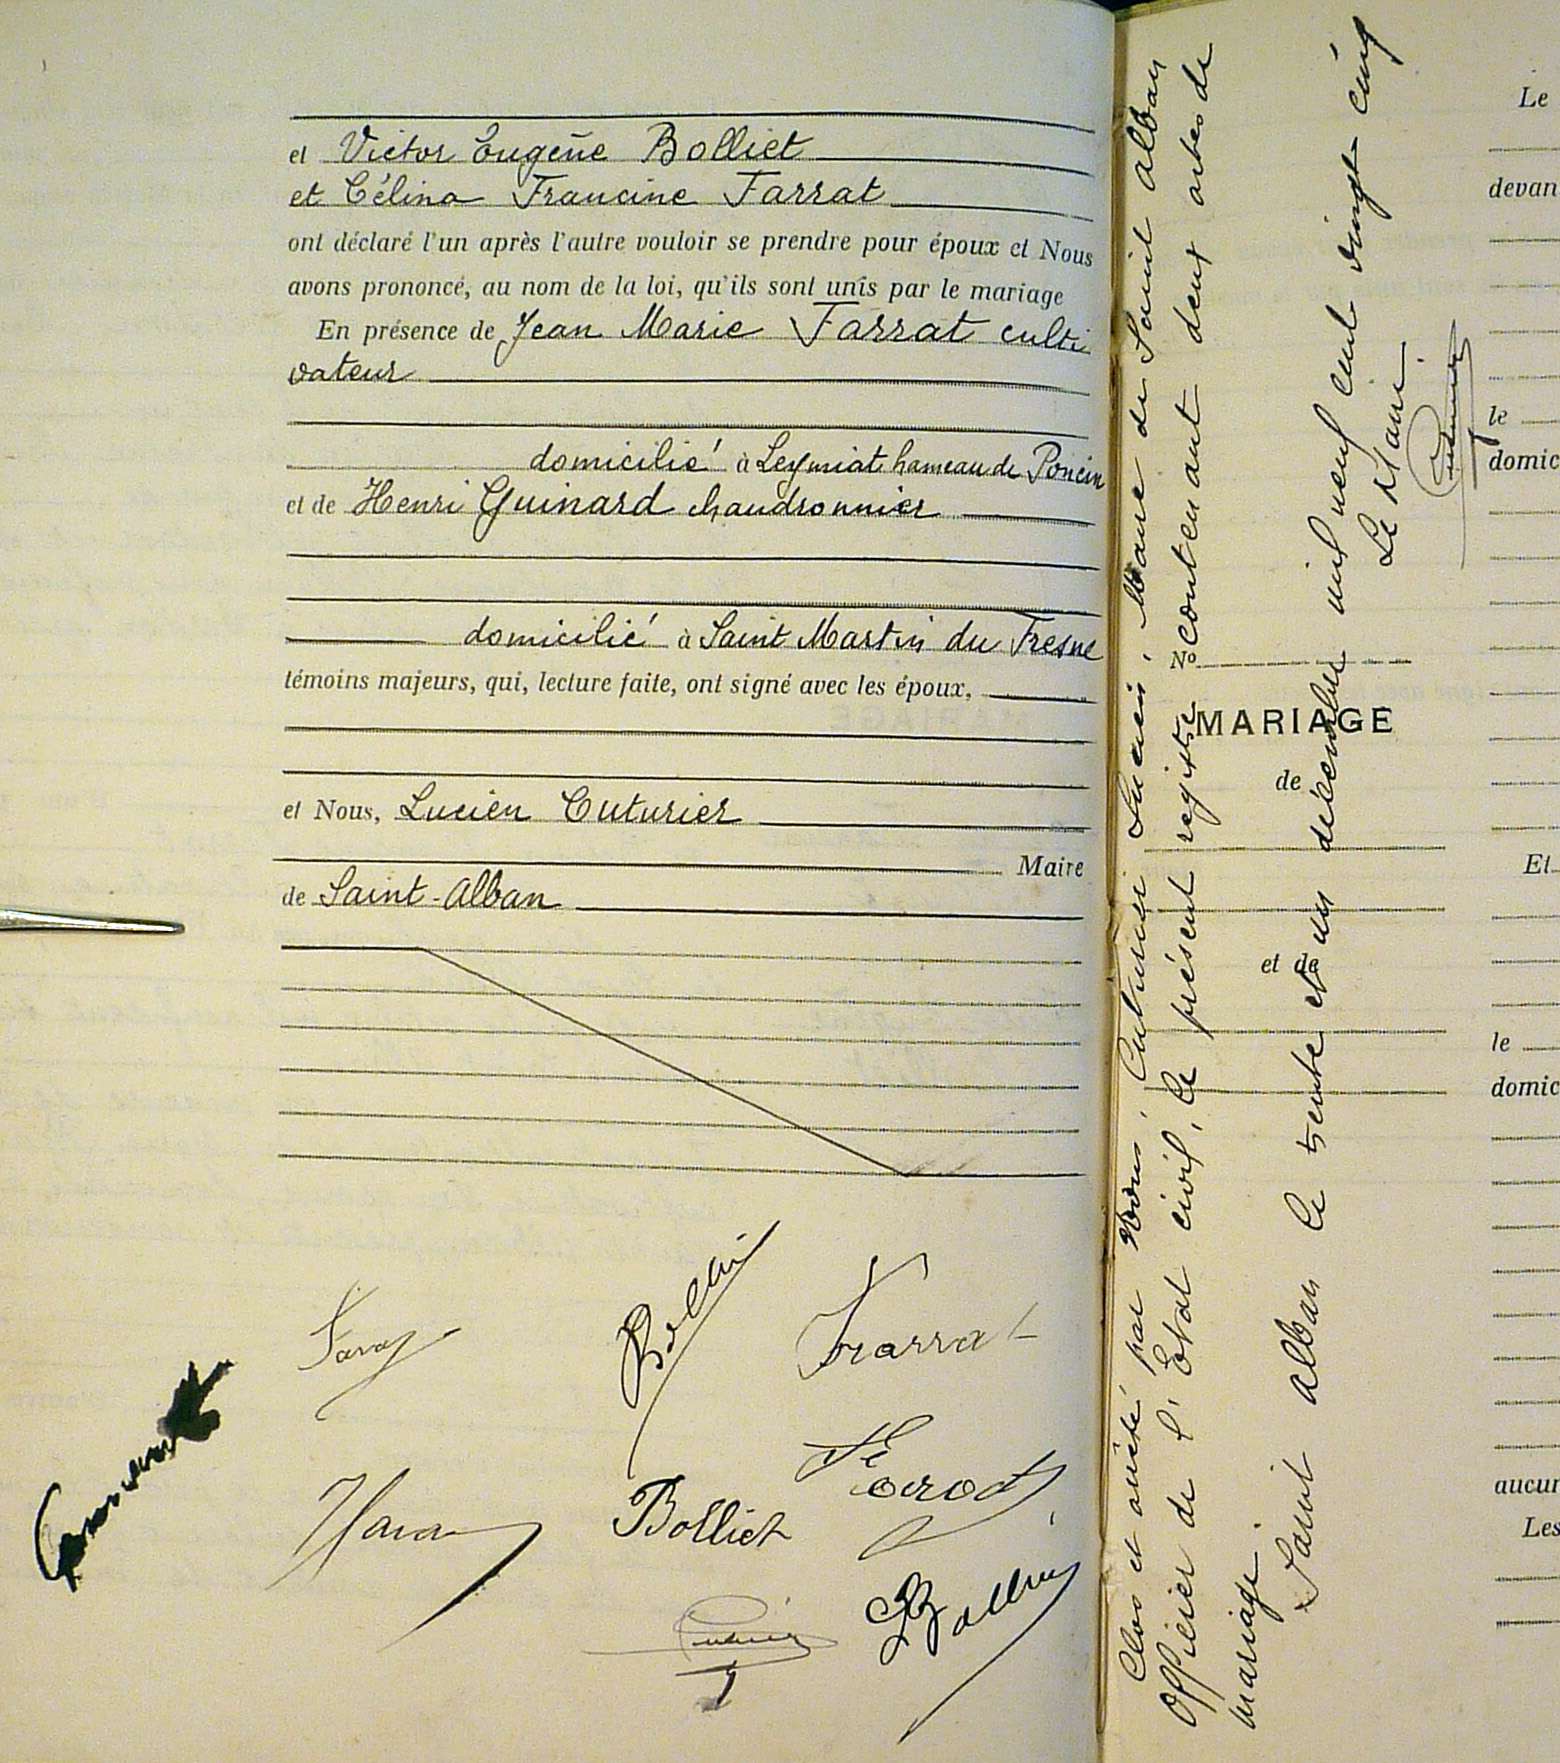 et Victor Eugène Bolliet
et Célina Francine Farrat
ont déclaré l'un après l'autre vouloir se prendre pour époux et Nous
avons prononcé, au nom de la loi, qu'ils sont unis par le mariage
En présence de Jean Marie Farrat culti
vateur
domicilié à Leymiat hameau de Poncin
et de Henri Guinard chaudronnier
domicilié à Saint Martin du Fresne
témoins majeurs, qui, lecture faite, ont signé avec les époux,
et Nous, Lucien Cuturier
Maire
de Saint-Alban
Farrat
Bolliet
Clos et arrêté par Nous, Cuturier Lucien, Maire de Saint Alban
Officier de l'Etat civil, le présent registre contenant deux actes de
mariage.
Saint Alban le trente et un décembre mil neuf cent vingt cinq
Le Maire.
Nº
MARIAGE
de
et de
Le
devan
le
domic
Et
le
domic
aucun
Les